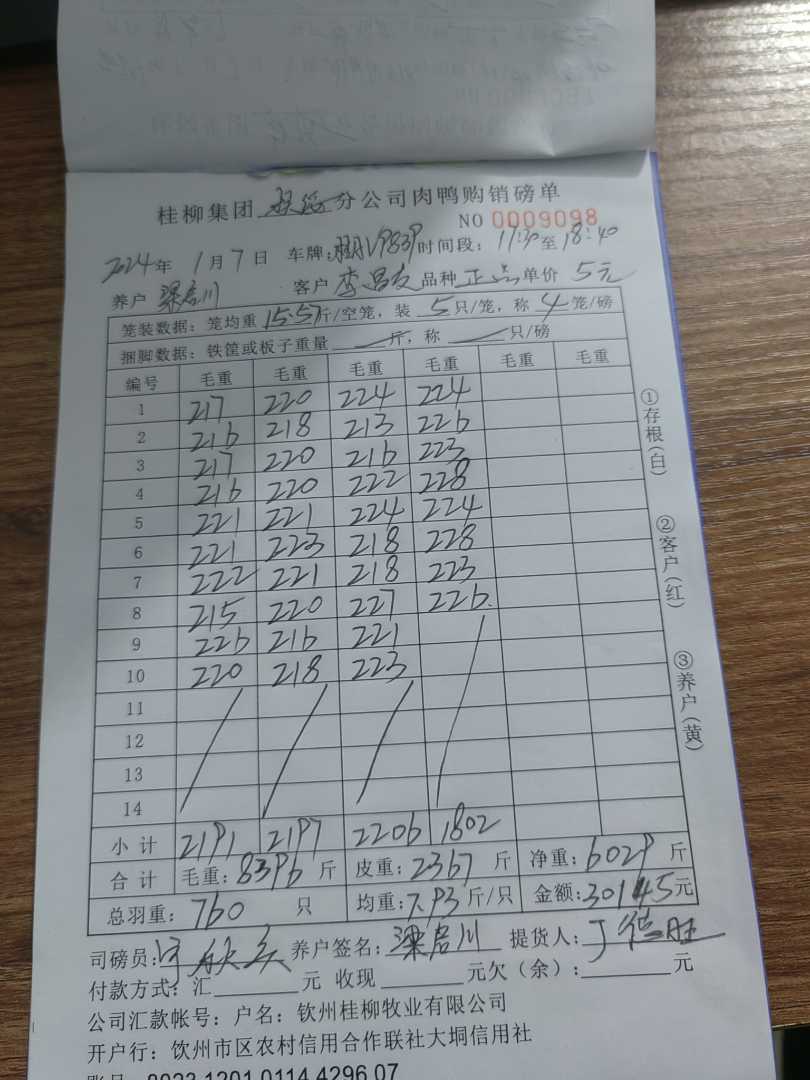 桂柳集团 分公司肉鸭购销磅单
NO 0009098
2024年 1月7日 车牌: 时间段: 17:30至18:40
养户 梁启川 客户 李昌友 品种 正品 单价 5元
笼装数据: 笼均重 15.57斤/空笼, 装 5只/笼, 称 4笼/磅
捆脚数据: 铁筐或板子重量 斤, 称 只/磅
编号 毛重 毛重 毛重 毛重 毛重 毛重
1 217 220 224 224
2 216 218 213 226
3 217 220 216 223
4 216 220 222 228
5 221 221 224 224
6 221 223 218 228
7 222 221 218 223
8 215 220 227 226
9 226 216 221
10 220 218 223
11
12
13
14
小计 2191 2197 2206 1802
合计 毛重: 8396 斤 皮重: 2367 斤 净重: 6029 斤
总羽重: 760 只 均重: 7.93 斤/只 金额: 30145元
司磅员: 养户签名: 梁启川 提货人: 丁德旺
付款方式: 汇 元 收现 元欠(余): 元
公司汇款帐号: 户名: 钦州桂柳牧业有限公司
开户行: 饮州市区农村信用合作联社大垌信用社
账号 0023 1201 0114 4296 07
①存根(白)
②客户(红)
③养户(黄)